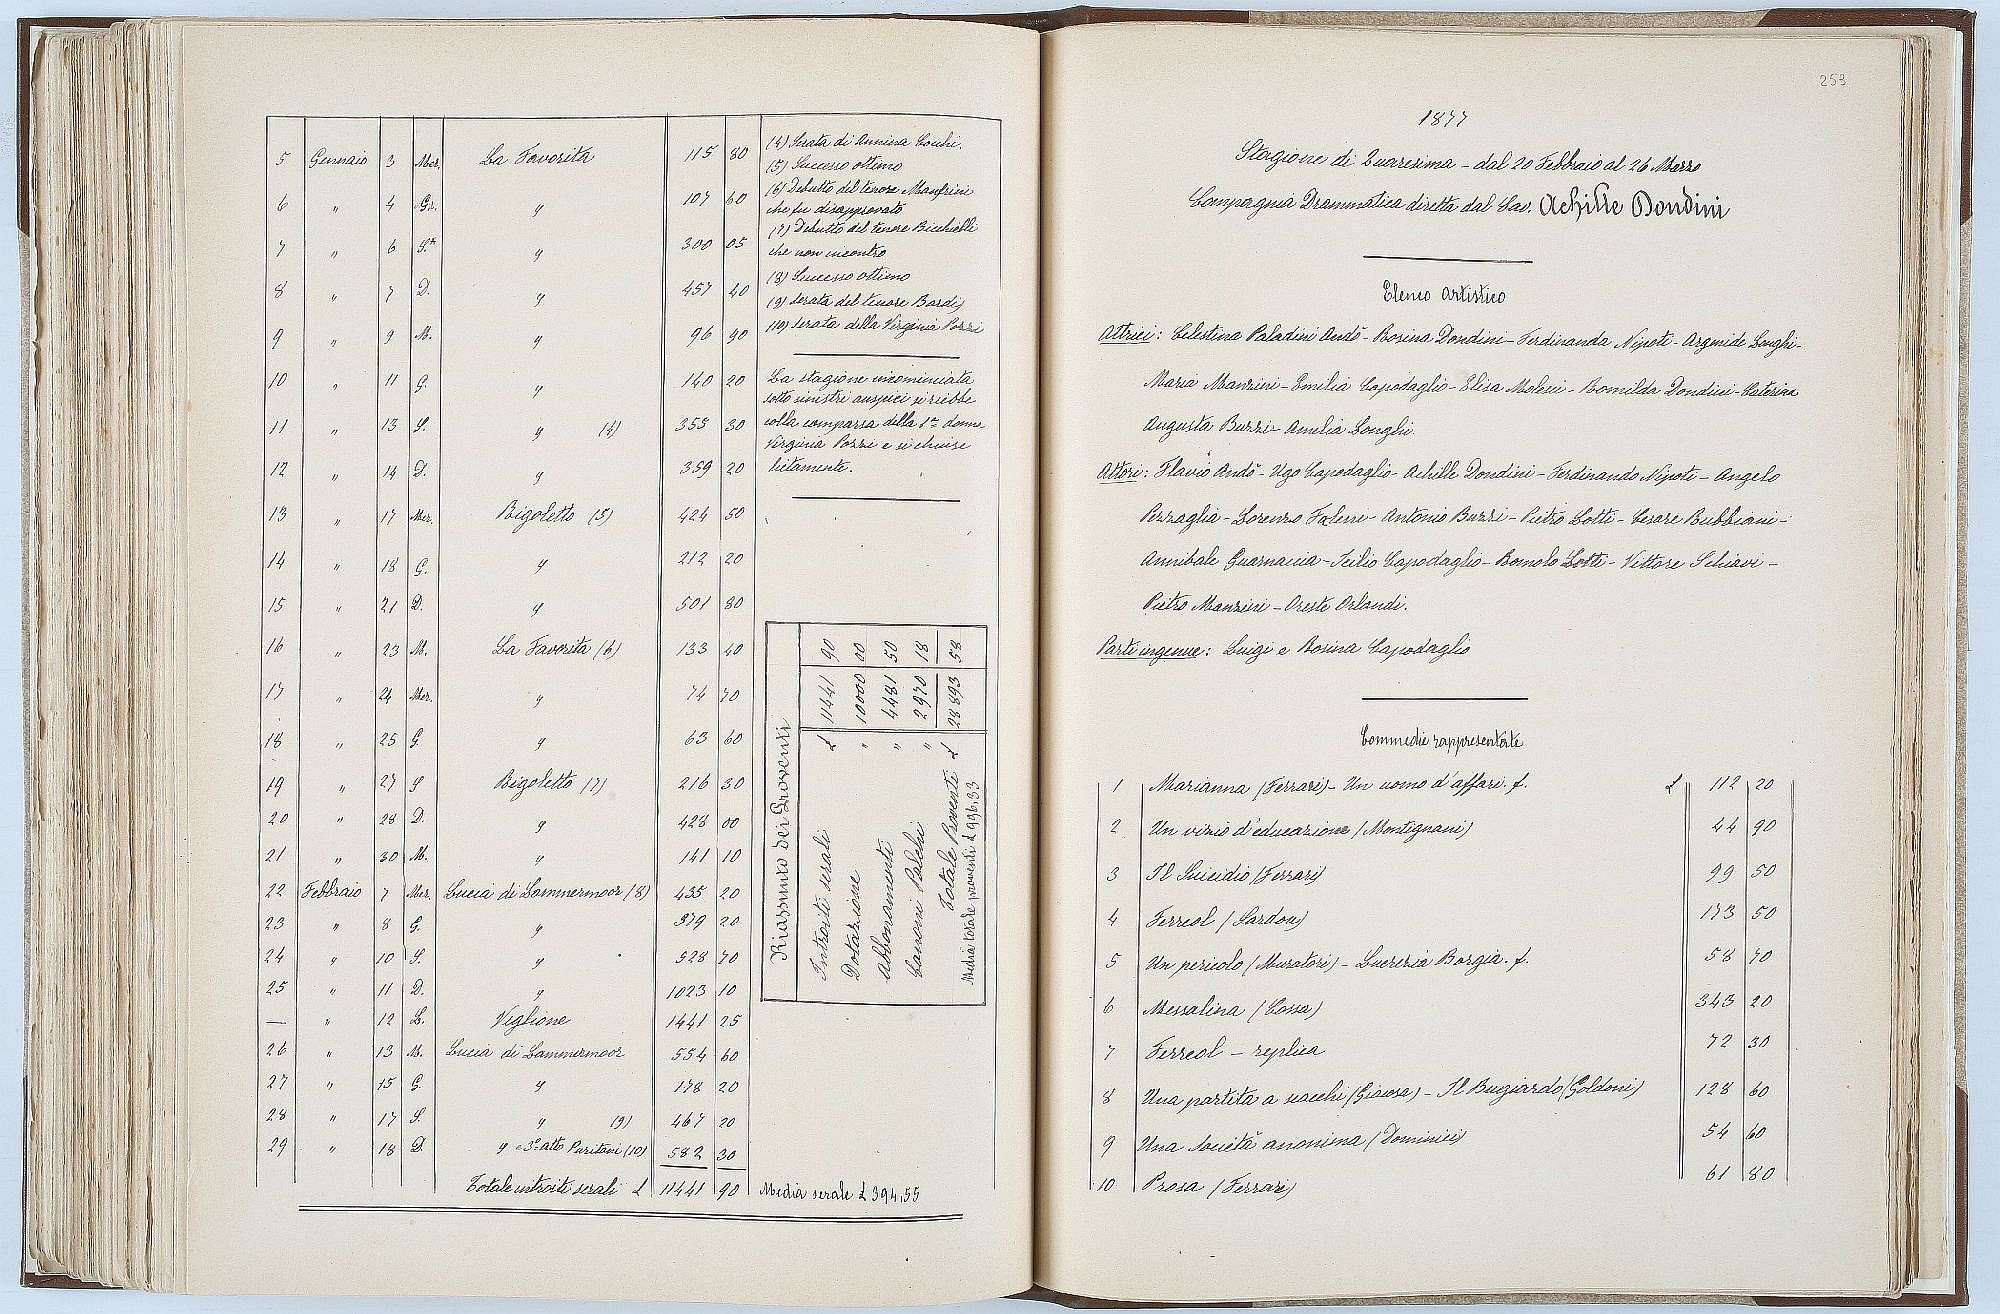 5 Gennaio 3 Mer. La Favorita 115 80
6 " 4 G. " 107 60
7 " 6 S. " 300 05
8 " 7 D. " 457 40
9 " 9 M. " 96 90
10 " 11 G. " 140 20
11 " 13 S. " (4) 353 30
12 " 14 D. " 359 20
13 " 17 Mer. Rigoletto (5) 424 50
14 " 18 G. " 212 20
15 " 21 D. " 501 80
16 " 23 M. La Favorita (6) 133 40
17 " 24 Mer. " 74 70
18 " 25 G. " 63 60
19 " 27 S Rigoletto (7) 216 30
20 " 28 D. " 428 00
21 " 30 M. " 141 10
22 Febbraio 7 Mer. Lucia di Lammermoor (8) 435 20
23 " 8 G. " 379 20
24 " 10 S. " 528 70
25 " 11 D. " 1023 10
— " 12 L. Veglione 1441 25
26 " 13 M. Lucia di Lammermoor 554 60
27 " 15 G. " 178 20
28 " 17 S. " (9) 467 20
29 " 18 D. " e 3º atto Puritani (10) 582 30
Totale introiti serali £ 11441 90 Media serale £ 394,55
(4) Serata di Annina Cocchi.
(5) Successo ottimo
(6) Debutto del tenore Manfrini
che fu disapprovato
(7) Debutto del tenore Bicchielli
che non incontrò
(8) Successo ottimo
(9) Serata del tenore Bardi
(10) Serata della Virginia Pozzi
La stagione incominciata
sotto sinistri auspici si riebbe
colla comparsa della 1ª donna
Virginia Pozzi e si chiuse
lietamente.
Riassunto dei Proventi
Introiti serali £ 11441 90
Dotazione " 10000 00
Abbonamenti " 4481 50
Canoni Palchi " 2970 18
Totale Proventi £ 28893 58
Media totale proventi £ 996,33
253
1877
Stagione di Quaresima - dal 20 Febbraio al 26 Marzo
Compagnia Drammatica diretta dal Cav. Achille Dondini
Elenco artistico
Attrici: Celestina Paladini Andò - Rosina Dondini - Ferdinanda Nipoti - Argenide Longhi -
Maria Manzini - Emilia Capodaglio - Elisa Moleni - Romilda Dondini - Caterina
Augusta Buzzi - Amelia Longhi
Attori: Flavio Andò - Ugo Capodaglio - Achille Dondini - Ferdinando Nipoti - Angelo
Pezzaglia - Lorenzo Faleni - Antonio Buzzi - Pietro Lotti - Cesare Bubbiani -
Annibale Guarnaccia - Icilio Capodaglio - Romolo Lotti - Vittore Schiavi -
Pietro Manzini - Oreste Orlandi.
Parti ingenue: Luigi e Rosina Capodaglio
Commedie rappresentate
1 Marianna (Ferrari) - Un uomo d'affari. f. £ 112 20
2 Un vizio d'educazione (Montignani) 44 90
3 Il Suicidio (Ferrari) 99 50
4 Ferreol (Sardou) 173 50
5 Un pericolo (Muratori) - Lucrezia Borgia. f. 58 70
6 Messalina (Cossa) 343 20
7 Ferreol - replica 72 30
8 Una partita a scacchi (Giacosa) - Il Bugiardo (Goldoni) 128 60
9 Una società anonima (Dominici) 54 60
10 Prosa (Ferrari) 61 80